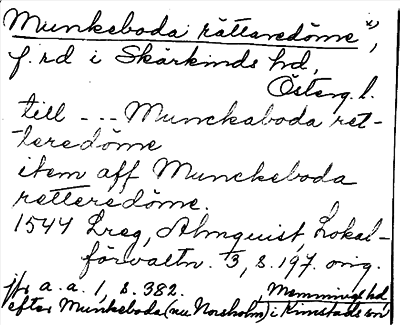 Munkeboda rättaredöme x),
f. rd i Skärkinds hd,
Österg. l.
till --- Munckaboda ret-
teredöme
item aff Munckeboda
retteredöme.
1544 Lreg, Almquist, Lokal-
förvaltn. /3, s. 197. orig.
jfr a. a. 1, s. 382. Memmings hd
efter Munkeboda (nu Norsholm) i Kimstads sn